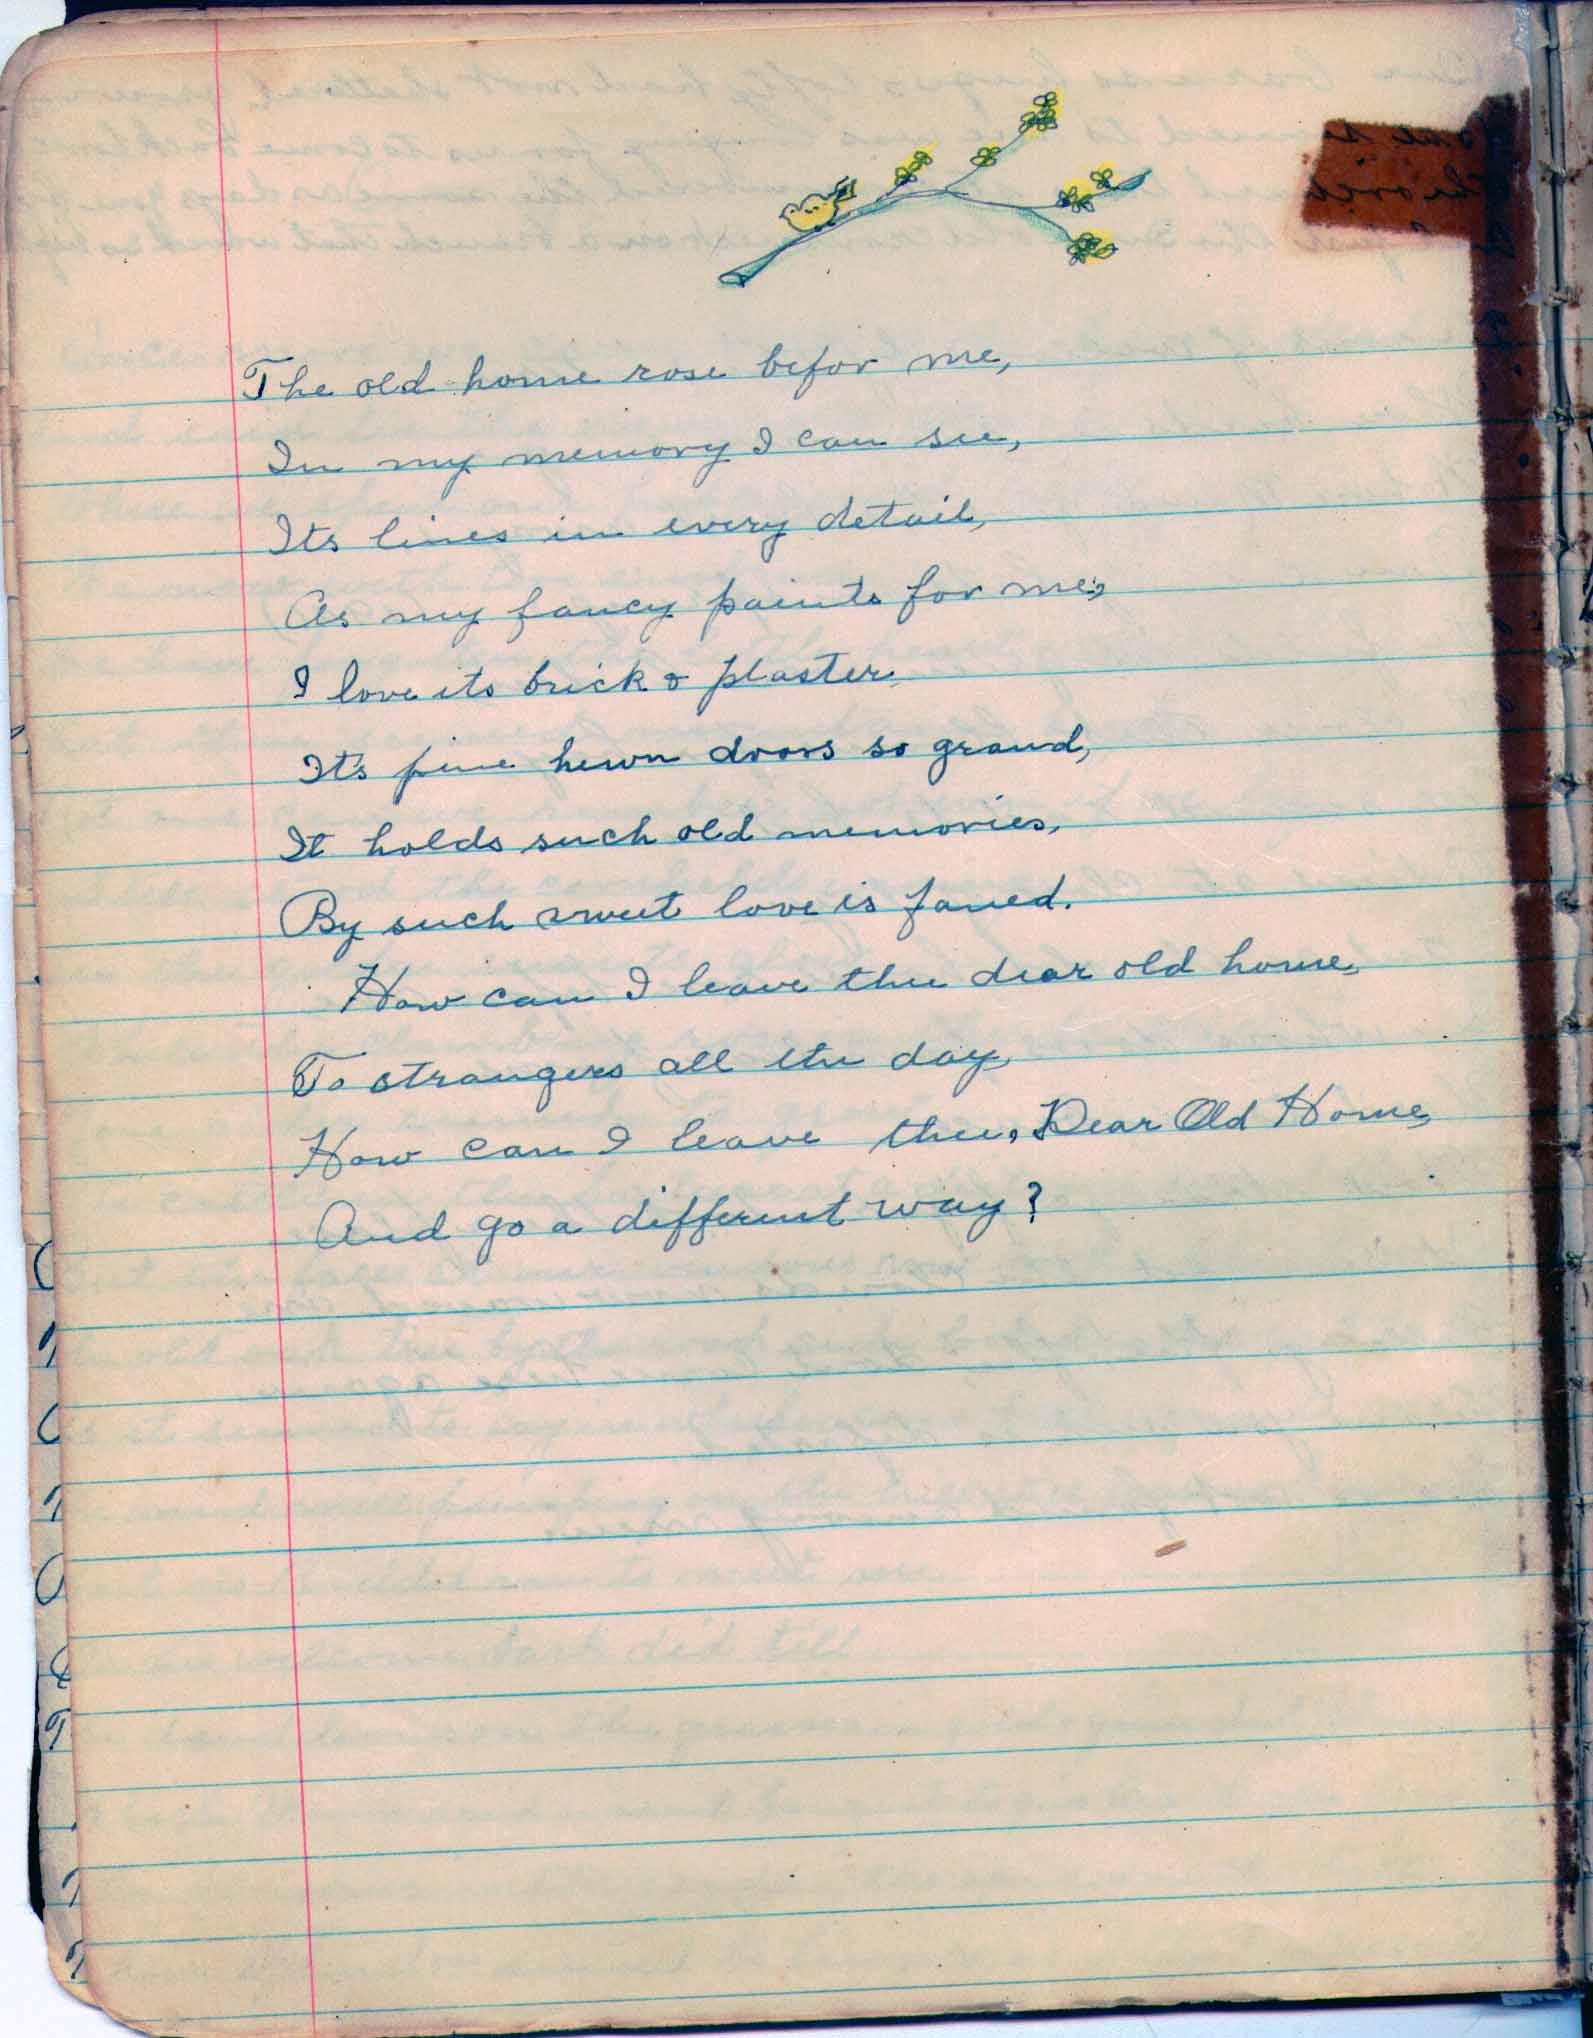 The old home rose befor me,
In my memory I can see,
Its lines in every detail,
As my fancy paints for me,
I love its brick & plaster,
It's pine hewn doors so grand,
It holds such old memories,
By such sweet love is faned.
How can I leave thee dear old home,
To strangers all the day,
How can I leave thee, Dear Old Home,
And go a different way?